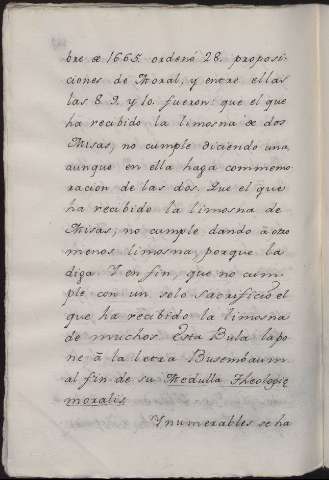 bre de 1665. ordenó 28. proposi-
ciones de Moral, y entre ellas
las 8. 9. y 10. fueron: que el que
ha recibido la limosna de dos
Misas, no cumple diciendo una,
aunque en ella haga commemo
racion de las dos. Que el que
ha recibido la limosna de
Misas, no cumple dando á otro
menos limosna, porque la
diga. Y en fin, que no cum-
ple con un solo sacrificio el
que ha recibido la limosna
de muchos. Esta Bula lapo
ne á la letra Busembaum.
al fin de su Medulla Theologie
moralis.
Ynumerables se ha